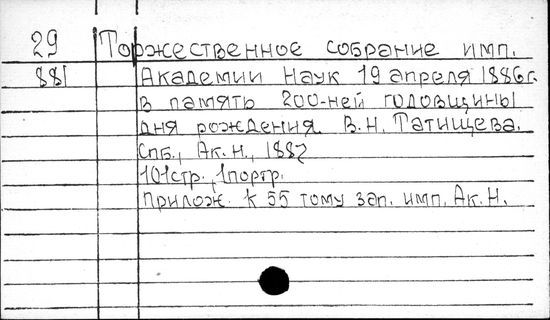 29 Торжественное собрание имп.
881 Академии Наук 19 апреля 1886г.
в память 200-ней годовщины
дня рождения В.Н. Татищева.
Спб., Ак.Н., 1887
101стр., 1портр.
Прилож. к 55 тому зап. имп. Ак.Н.